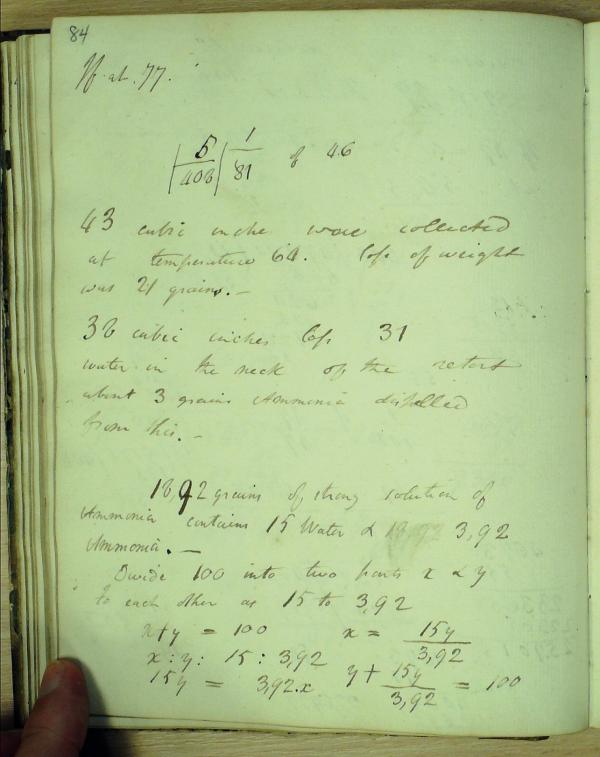 84
at 77.
5/408 1/81 of 46
43 cubic inche were collected
at temperature 64. Loss of weight
was 21 grains. –
38 cubic inches Loss 31
water in the neck of the retort
about 3 grains Ammonia distilled
from this. –
18,92 grains of strong solution of
Ammonia contains 15 Water & 18,92 3,92
Ammonia. –
Divide 100 into two parts x & y
to each other as 15 to 3,92
x+y = 100 x = 15y/3,92
x : y : 15 : 3,92
15y = 3,92.x y + 15y/3,92 = 100